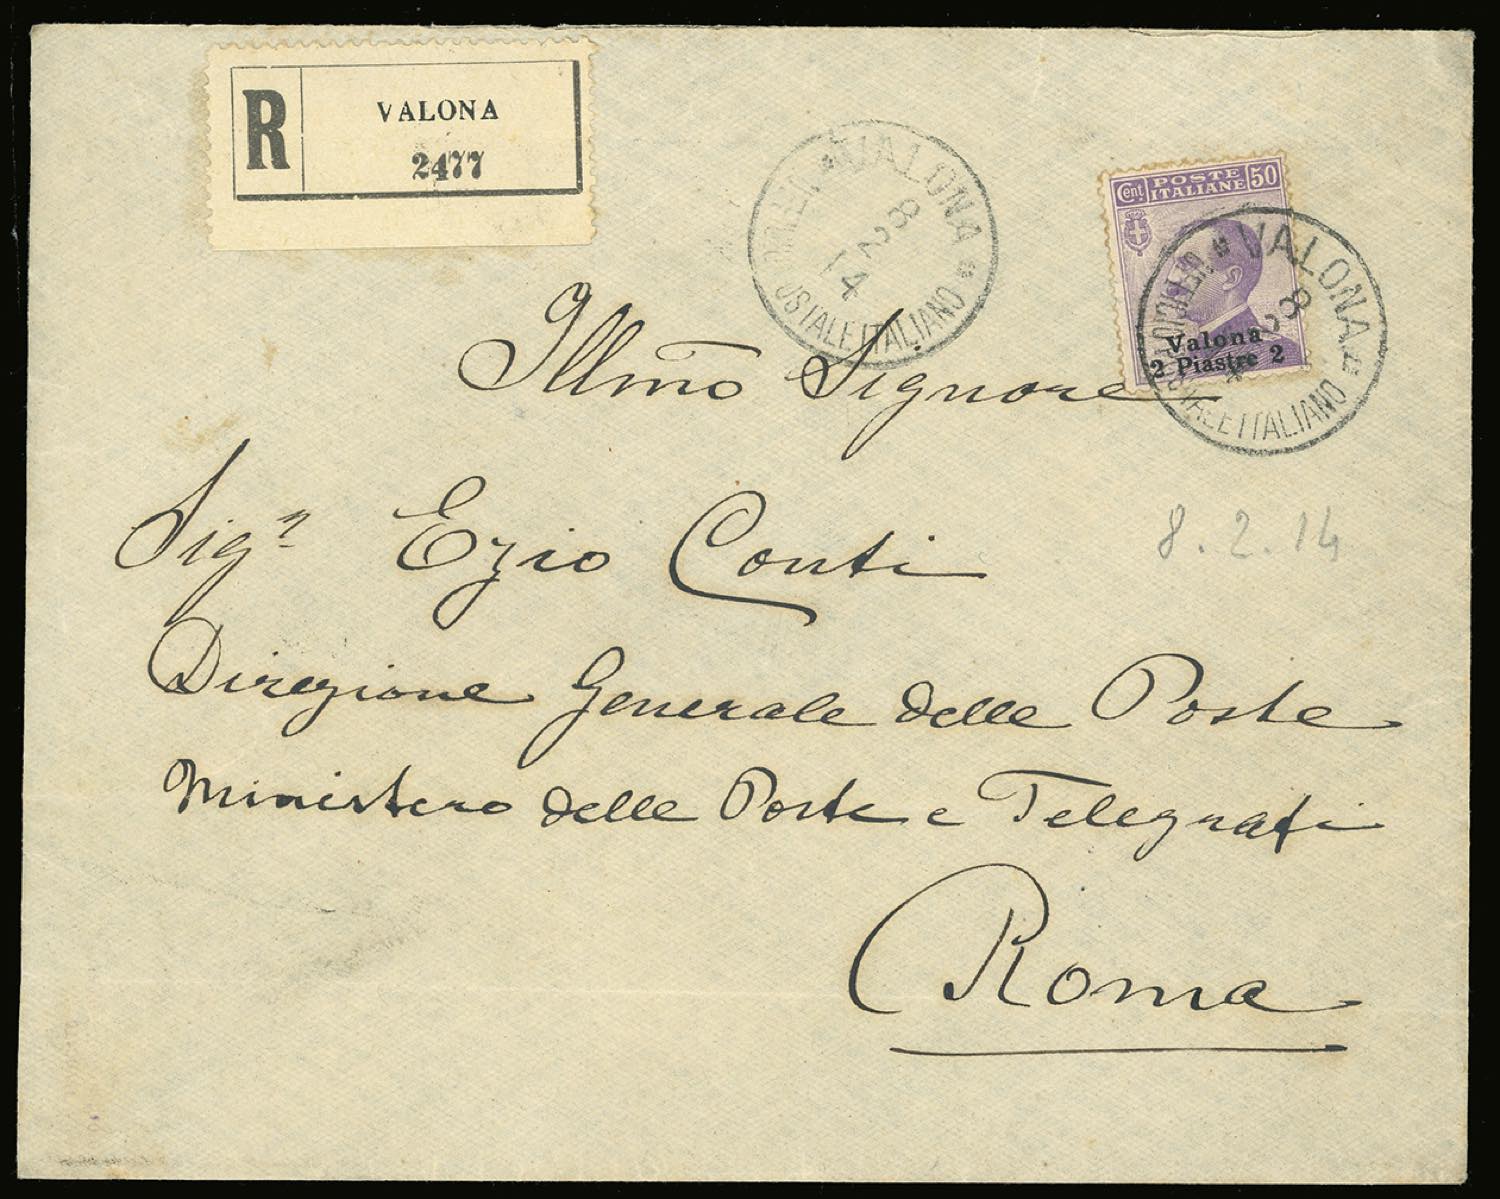 R
VALONA
2477
VALONA
8
2
14
POSTALE ITALIANO
Cent. POSTE ITALIANE 50
Valona
2 Piastre 2
VALONA
8
2
POSTALE ITALIANO
Illmo Signore
Sigr Ezio Conti
8.2.14
Direzione Generale delle Poste
Ministero delle Poste e Telegrafi
Roma